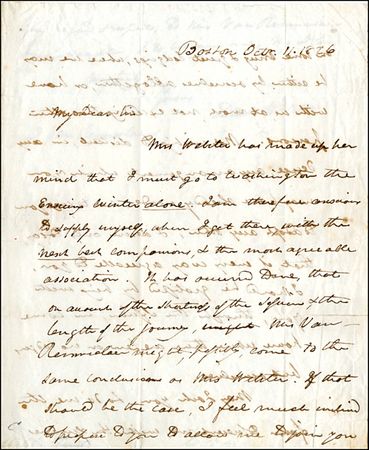 Boston Octr. 11. 1826
My dear Sir
Mrs Webster has made up her
mind that I must go to Washington the
Ensuing winter alone. I am therefore anxious
to supply myself when I get there with the
next best companions, & the most agreeable
association. It has occurred to me, that
on account of the shortness of the session & the
length of the journey, Mrs Van
Rensselaer might possibly come to the
same conclusion as Mrs Webster. If that
should be the case, I feel much inclined
to propose to you to allow me to join you